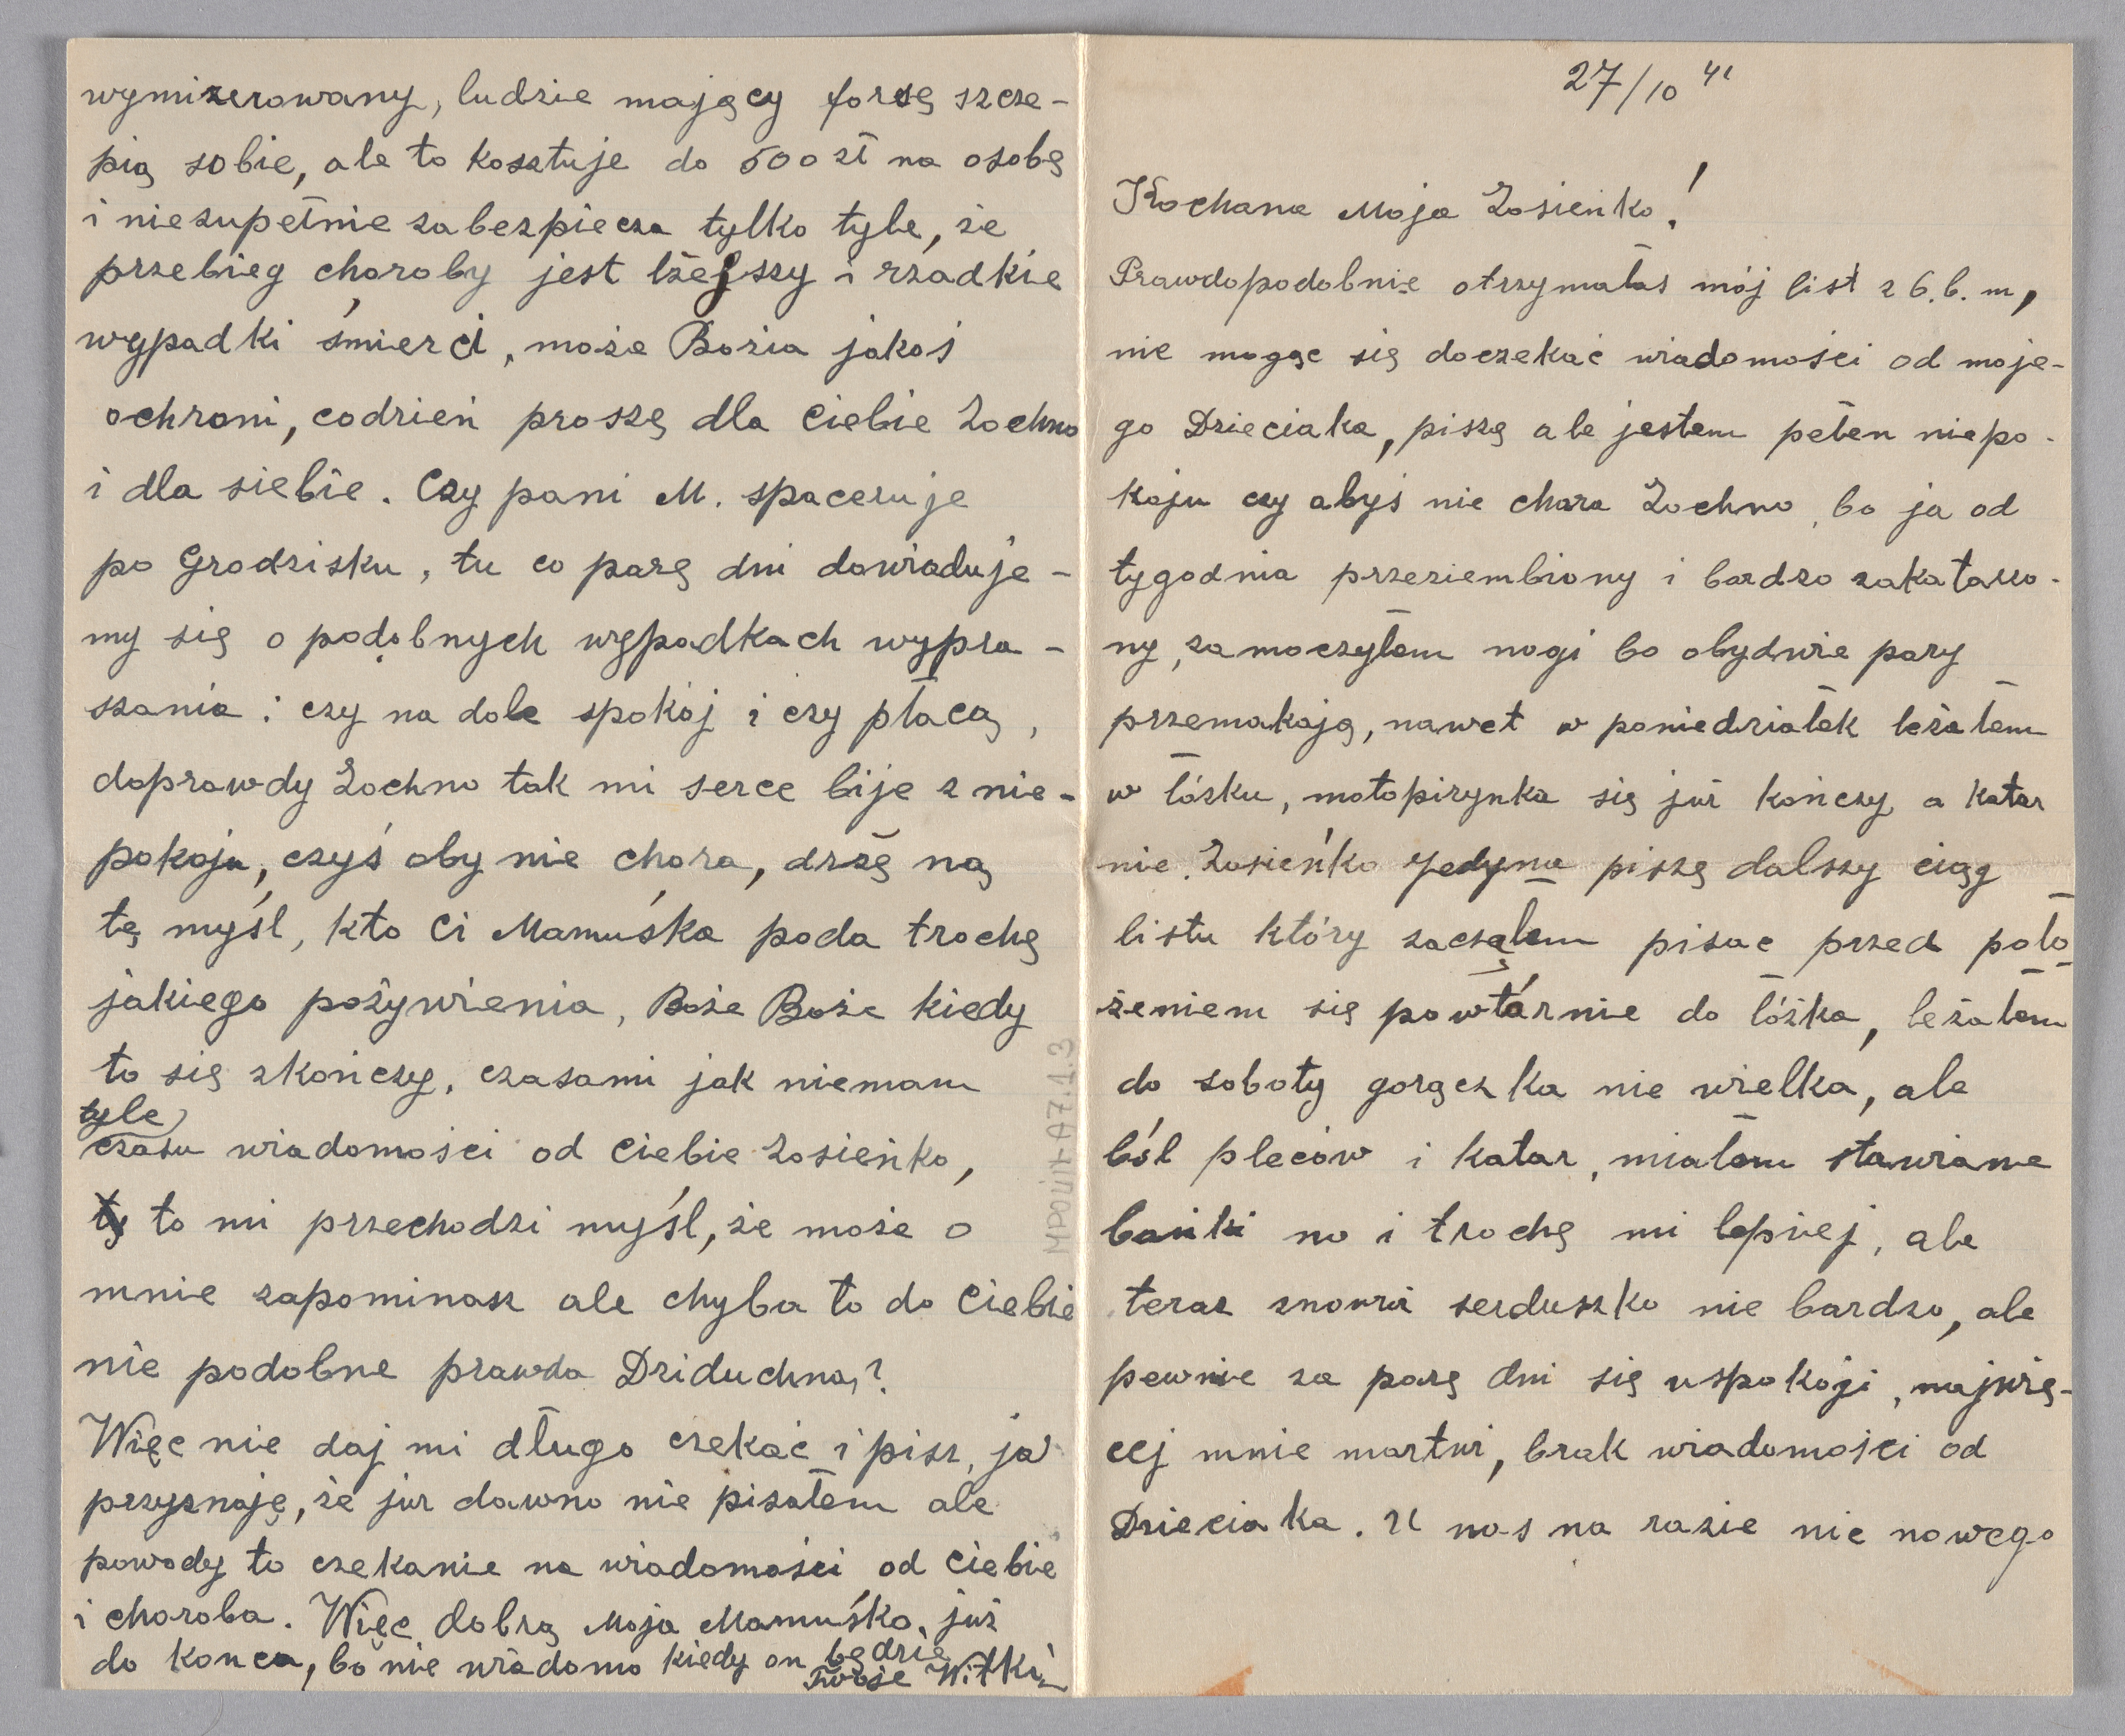 27/10 41
Kochana Moja Zosieńko!
Prawdopodobnie otrzymałaś mój list z 6.b.m,
nie mogąc się doczekać wiadomości od moje-
go Dzieciaka, piszę ale jestem pełen niepo-
koju czy abyś nie chora Zochno, bo ja od
tygodnia przeziembiony i bardzo zakatarzo-
ny, zamoczyłem nogi bo obydwie pary
przemakają, nawet w poniedziałek leżałem
w łóżku, motopirynka się już kończy a katar
nie. Zosieńko Jedyna piszę dalszy ciąg
listu który zacząłem pisać przed poło-
żeniem się powtórnie do łóżka, leżałem
do soboty gorączka nie wielka, ale
ból pleców i katar, miałem stawiane
bańki no i trochę mi lepiej, ale
teraz znowu serduszko nie bardzo, ale
pewnie za parę dni się uspokoji, najwię-
cej mnie martwi, brak wiadomości od
Dzieciaka. U nas na razie nic nowego
wymizerowany, ludzie mający forsę szcze-
pią sobie, ale to kosztuje do 500 zł na osobę
i niezupełnie zabezpiecza tylko tyle, że
przebieg choroby jest lżejszy i rzadkie
wypadki śmierci, może Bozia jakoś
ochroni, codzień proszę dla Ciebie Zochno
i dla siebie. Czy pani M. spaceruje
po Grodzisku, tu co parę dni dowiaduje-
my się o podobnych wypadkach wypra-
szania i czy na dole spokój i czy płacą,
doprawdy Zochno tak mi serce bije z nie-
pokoju, czyś aby nie chora, drżę na
tę myśl, kto Ci Mamuśka poda trochę
jakiego pożywienia, Boże Boże kiedy
to się skończy, czasami jak niemam
tyle
czasu wiadomości od Ciebie Zosieńko,
to mi przechodzi myśl, że może o
mnie zapominasz ale chyba to do Ciebie
nie podobne prawda Dziduchna?
Więc nie daj mi długo czekać i pisz, ja
przyznaję, że już dawno nie pisałem ale
powody to czekanie na wiadomości od Ciebie
i choroba. Więc dobrą Moja Mamuśko, już
do końca, bo nie wiadomo kiedy on będzie
Twoje Witki
MPOW A7.1.3